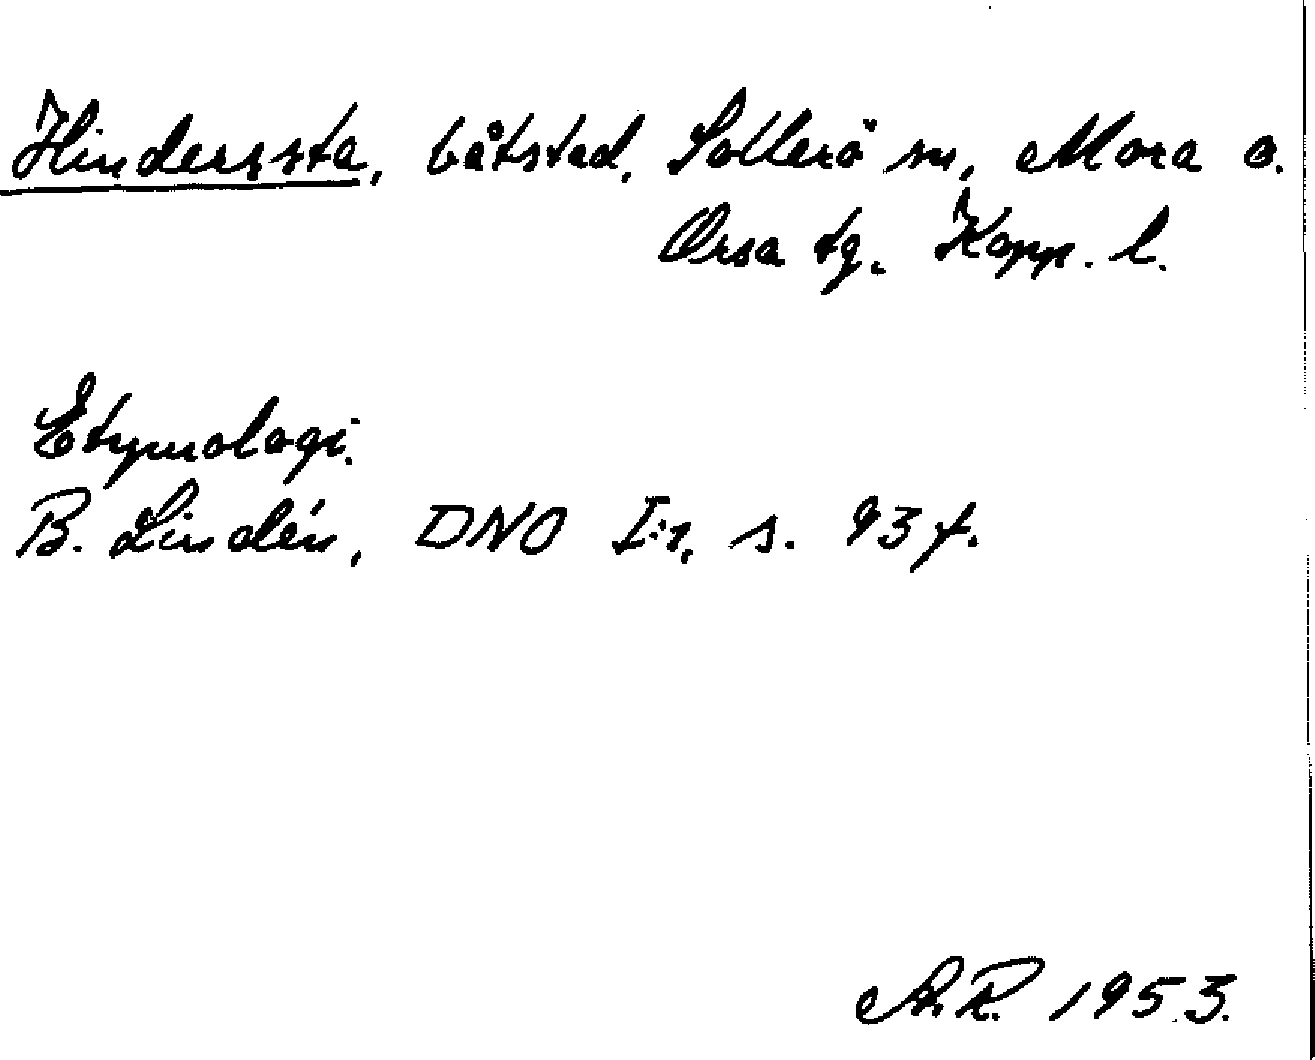 Hindersste, båtstad, Sollerö sn, Mora o.
Orsa tg. Kopp. l.
Etymologi.
B. Lindén, DNO I:1, s. 93 f.
A.R. 1953.